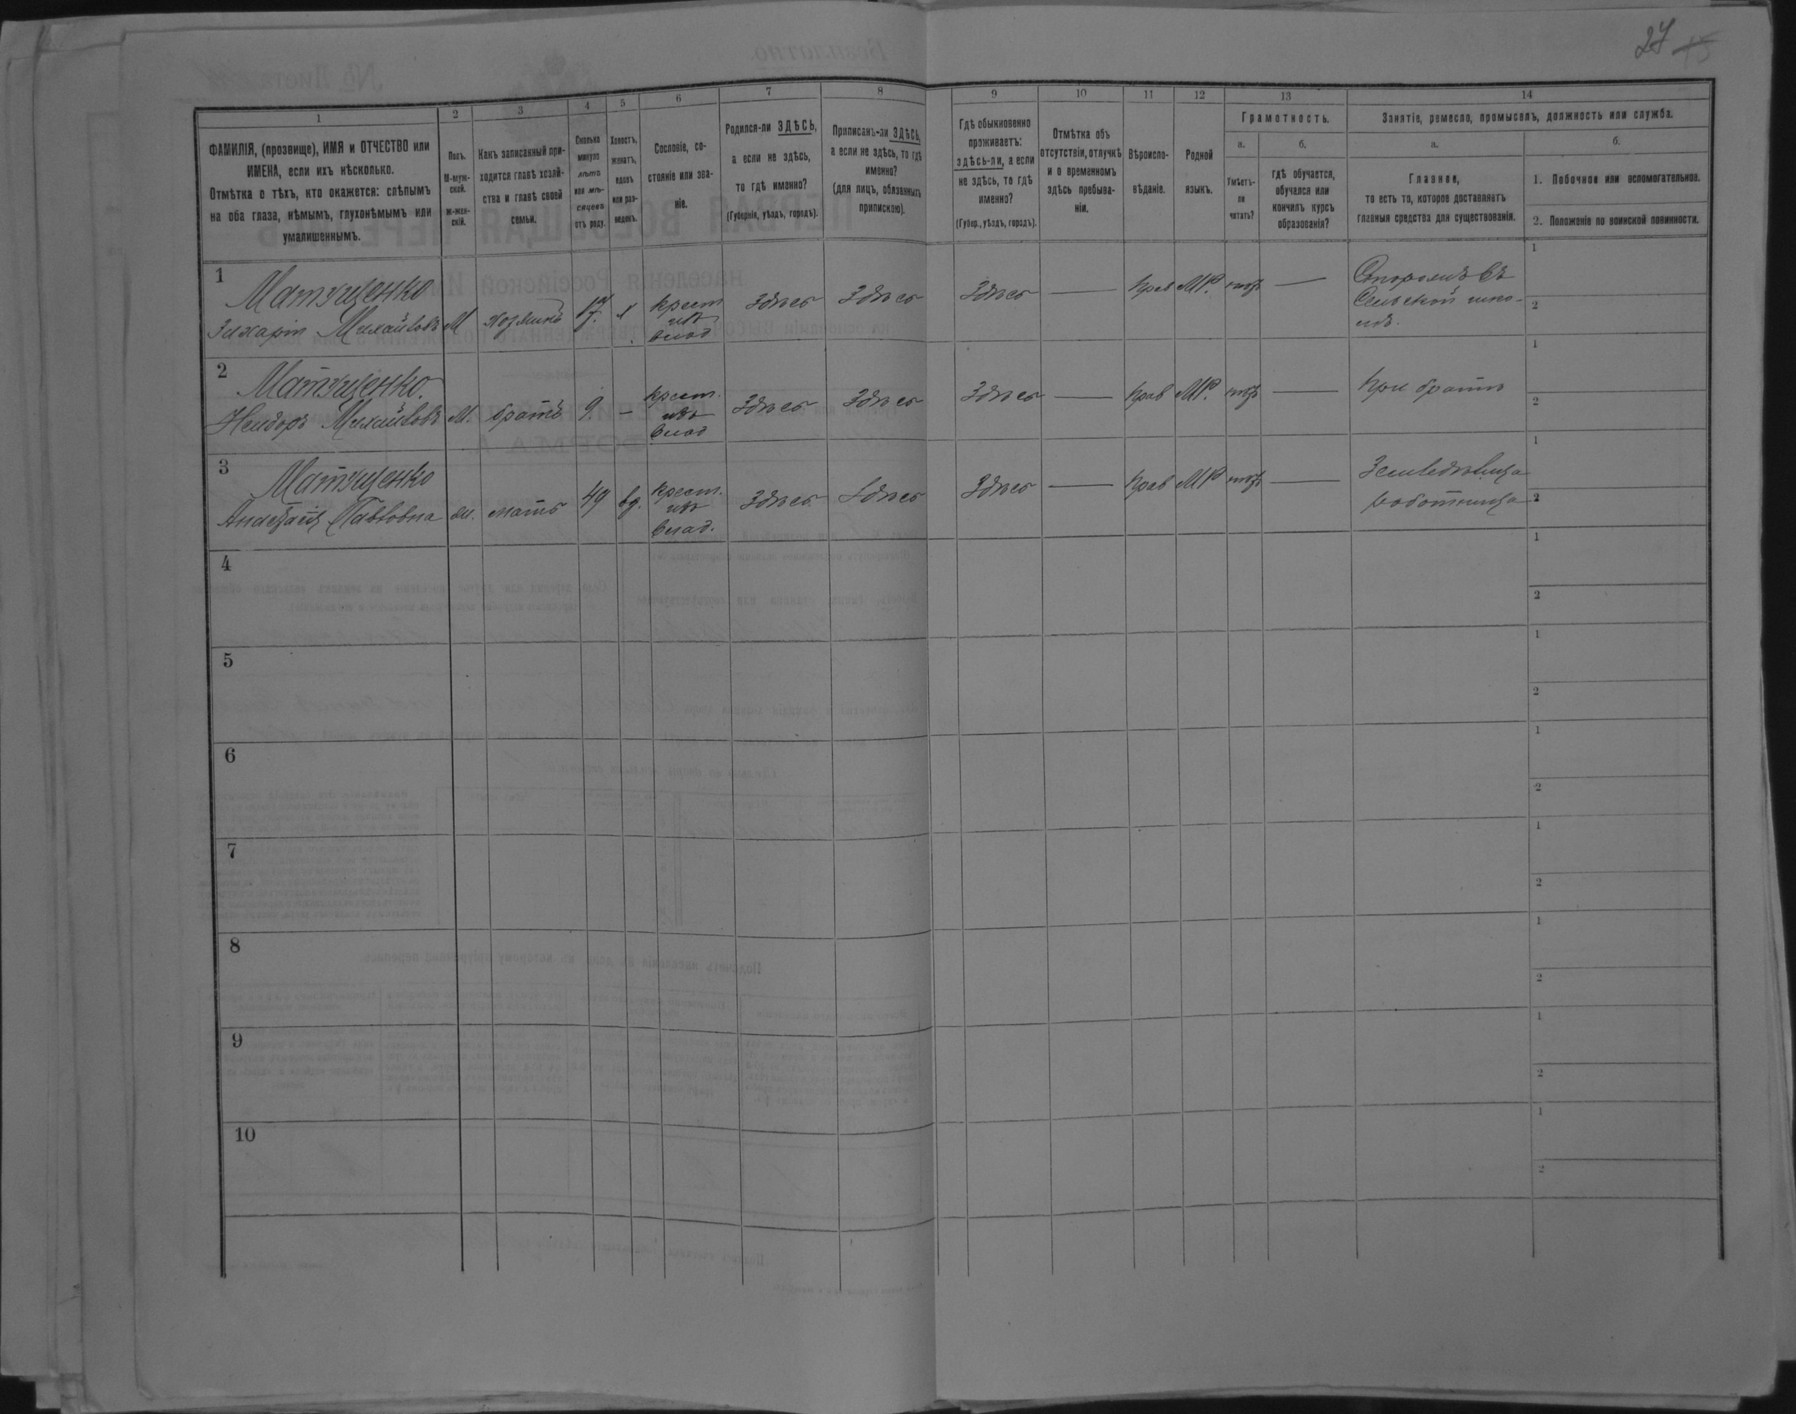 27 15
1
2
3
4
5
6
7
8
9
10
11
12
13
14
ФАМИЛІЯ, (прозвище), ИМЯ и ОТЧЕСТВО или
ИМЕНА, если ихъ нѣсколько.
Отмѣтка о тѣхъ, кто окажется: слѣпымъ
на оба глаза, нѣмымъ, глухонѣмымъ или
умалишеннымъ.
Полъ.
М-муж-
ской.
Ж-жен-
скій.
Какъ записанный при-
ходится главѣ хозяй-
ства и главѣ своей
семьи.
Сколько
минуло
лѣтъ
или мѣ-
сяцевъ
отъ роду.
Холостъ,
женатъ,
вдовъ
или раз-
веденъ.
Сословіе, со-
стояніе или зва-
ніе.
Родился-ли ЗДѢСЬ,
а если не здѣсь,
то гдѣ именно?
(Губернія, уѣздъ, городъ).
Приписанъ-ли ЗДѢСЬ,
а если не здѣсь, то гдѣ
именно?
(для лицъ, обязанныхъ
припискою).
Гдѣ обыкновенно
проживаетъ:
здѣсь-ли, а если
не здѣсь, то гдѣ
именно?
(Губер., уѣздъ, городъ).
Отмѣтка объ
отсутствіи, отлучкѣ
и о временномъ
здѣсь пребыва-
ніи.
Вѣроиспо-
вѣданіе.
Родной
языкъ.
Грамотность.
а.
Умѣетъ-
ли
читать?
б.
гдѣ обучается,
обучался или
кончилъ курсъ
образованія?
Занятіе, ремесло, промыселъ, должность или служба.
а.
Главное,
то есть то, которое доставляетъ
главныя средства для существованія.
б.
1. Побочное или вспомогательное.
2. Положеніе по воинской повинности.
1
Матущенко
Захарій Михайловъ М хозяинъ 17 х крест. изъ влад. Здѣсь Здѣсь Здѣсь — Прав МР. нѣтъ — Сторожъ въ
Сельской шко-
лѣ.
1
2
2
Матущенко.
Михайловъ М. братъ 9 — крест. изъ влад Здѣсь Здѣсь Здѣсь — Прав МР. нѣтъ — При братѣ
1
2
3
Матущенко
Анастасія Павловна ж. мать 49 вд. крест. изъ влад. Здѣсь Здѣсь Здѣсь — Прав МР нѣтъ — Земледѣлица
работница
1
2
4
1
2
5
1
2
6
1
2
7
1
2
8
1
2
9
1
2
10
1
2